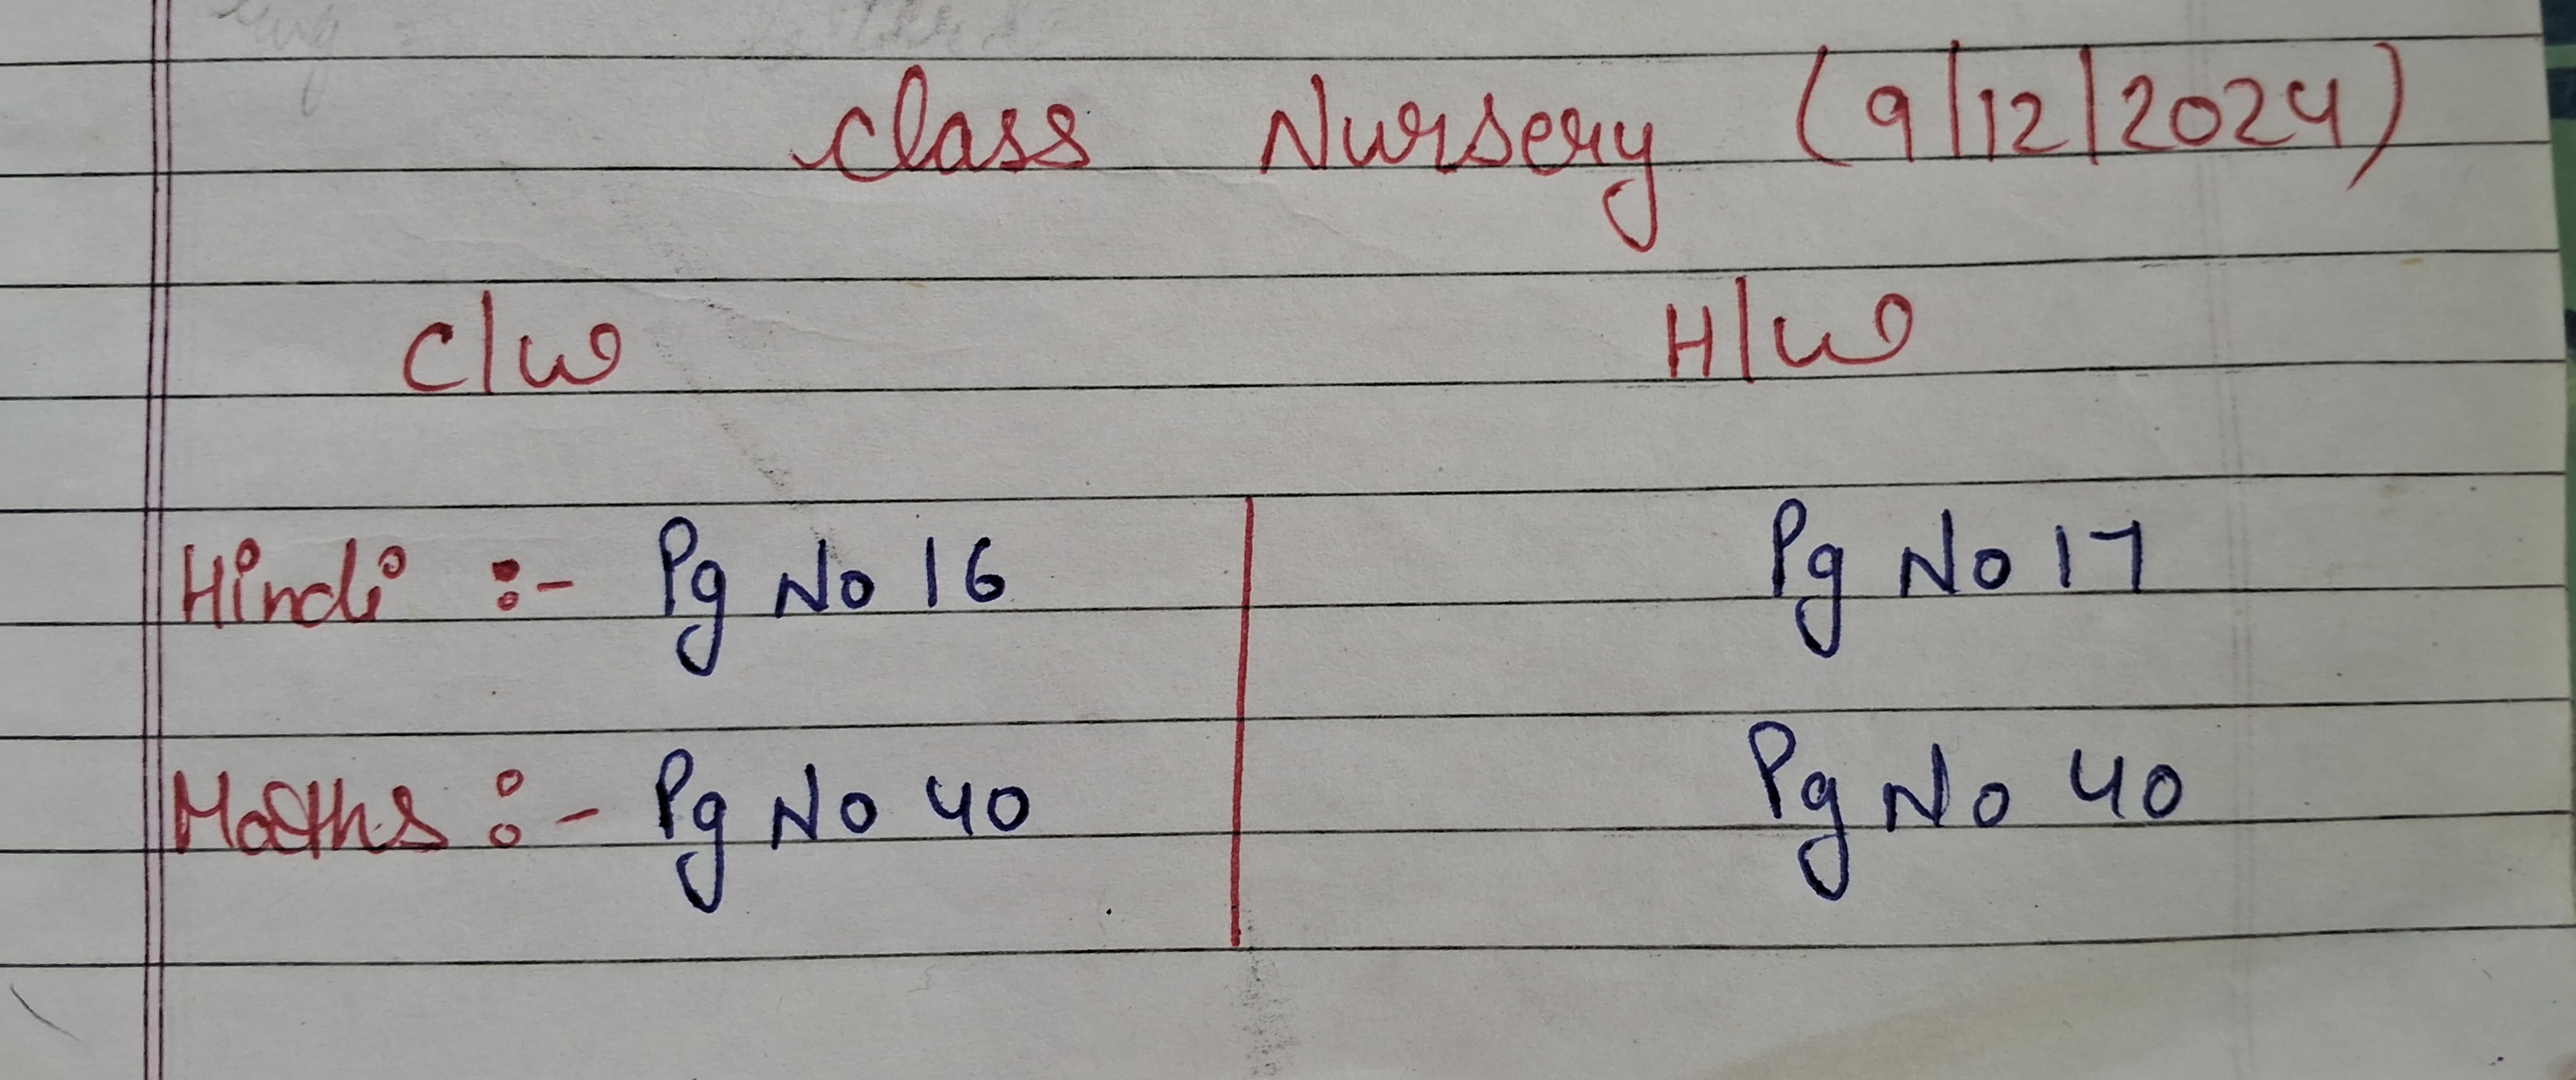 Class Nursery (9/12/2024)
C/w H/w
Hindi :- Pg No 16 Pg No 17
Maths :- Pg No 40 Pg No 40